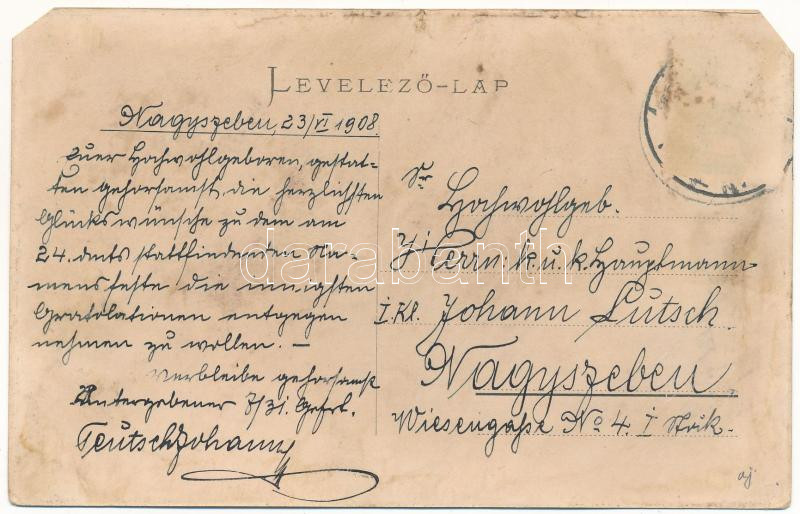 LEVELEZŐ-LAP
Nagyszeben, 23/VI 1908
Euer Hochwohlgeboren, gestat-
ten gehorsamst die herzlichsten
Glückswünsche zu dem am
24. dmts stattfindenden Na-
mensfeste die innigsten
Gratolationen entgegen
nehmen zu wollen. —
verbleibe gehorsamst
Untergebener 7/31. Gefrt.
Teutsch Johann
Sr Hochwohlgeb.
Herrn k. u. k. Hauptmann
I. Kl. Johann Lutsch
Nagyszeben
Wiesengaße No 4. I Stok.
darabanth.com
aj